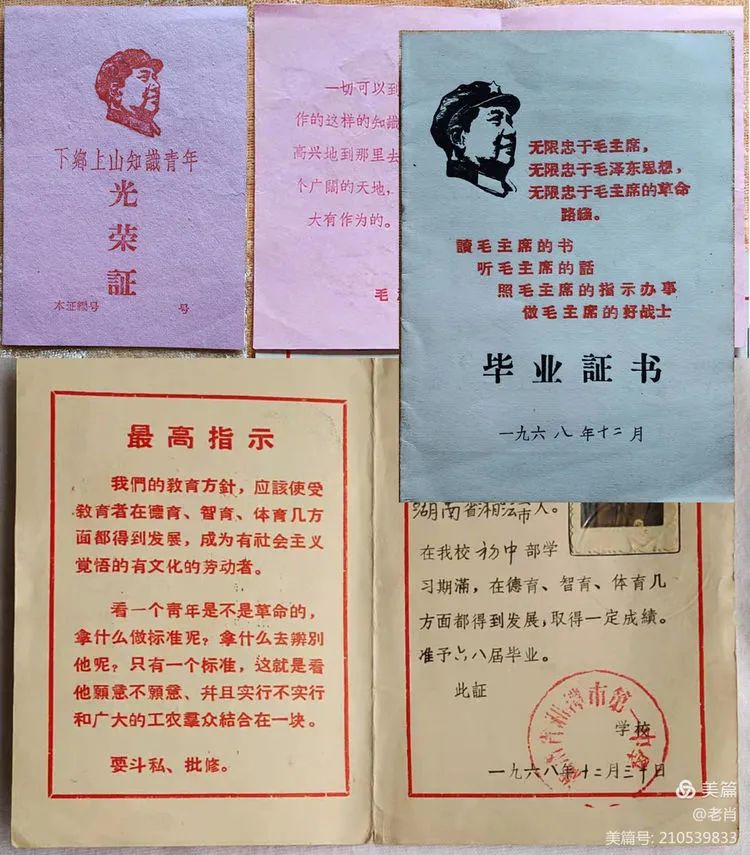 下鄉上山知識青年
光
荣
証
本证編号 号
一切可以到
作的这样的知識
高兴地到那里去
个广闊的天地，
大有作为的。
毛
无限忠于毛主席，
无限忠于毛泽东思想，
无限忠于毛主席的革命
路綫。
讀毛主席的书
听毛主席的話
照毛主席的指示办事
做毛主席的好战士
毕业証书
一九六八年十二月
最高指示
我們的教育方針，应該使受
教育者在德育、智育、体育几方
面都得到发展，成为有社会主义
覚悟的有文化的劳动者。
看一个青年是不是革命的，
拿什么做标准呢？拿什么去辨別
他呢？只有一个标准，这就是看
他願意不願意、幷且实行不实行
和广大的工农羣众結合在一块。
要斗私、批修。
湖南省湘 市人。
在我校初中部学
习期满，在德育、智育、体育几
方面都得到发展，取得一定成績。
准予六八届毕业。
此証
市第一
学校
一九六八年十二月三十日
美篇
@老肖
美篇号: 210539833